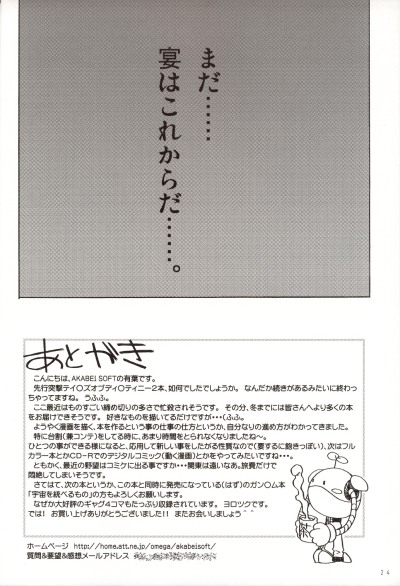 まだ……
宴はこれからだ……。
あとがき
こんにちは、AKABEI SOFTの有葉です。
先行突撃テイ○ズオブディ○ティニー2本、如何でしたでしょうか。なんだか続きがあるみたいに終わっ
ちゃってますね。うふふ。
ここ最近はものすごい締め切りの多さで忙殺されそうです。その分、冬までには皆さんへより多くの本
をお届けできそうです。好きなものを描いてるだけですが・・・(ふふ。
ようやく漫画を描く、本を作るという事の仕事の仕方というか、自分なりの進め方がわかってきました。
特に台割(兼コンテ)をしてる時に、あまり時間をとられなくなりましたね〜。
ひとつの事ができる様になると、応用して新しい事をしたがる性質なので(要するに飽きっぽい)、次はフル
カラー本とかCD-Rでのデジタルコミック(動く漫画)とかをやってみたいですね・・・。
ともかく、最近の野望はコミケに出る事ですか・・・関東は遠いなあ。旅費だけで
悶絶してしまいそうです。
さてはて、次の本というか、この本と同時に発売になっている(はず)のガン○ム本
「宇宙を統べるもの」の方もよろしくお願いします。
なぜか大好評のギャグ4コマもたっぷり収録されています。ヨロツクです。
では! お買い上げありがとうございました!! またお会いしましょう^^
ホームページ http://home.att.ne.jp/omega/akabeisoft/
質問&要望&感想メールアドレス
24